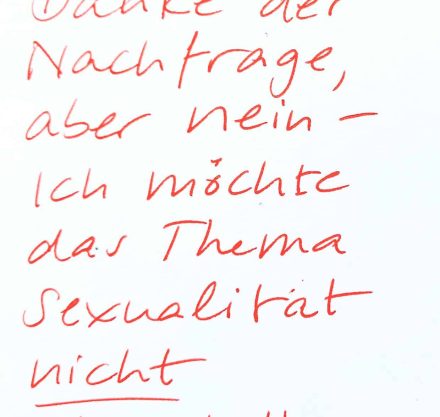 Danke der
Nachfrage,
aber nein –
Ich möchte
das Thema
Sexualität
nicht